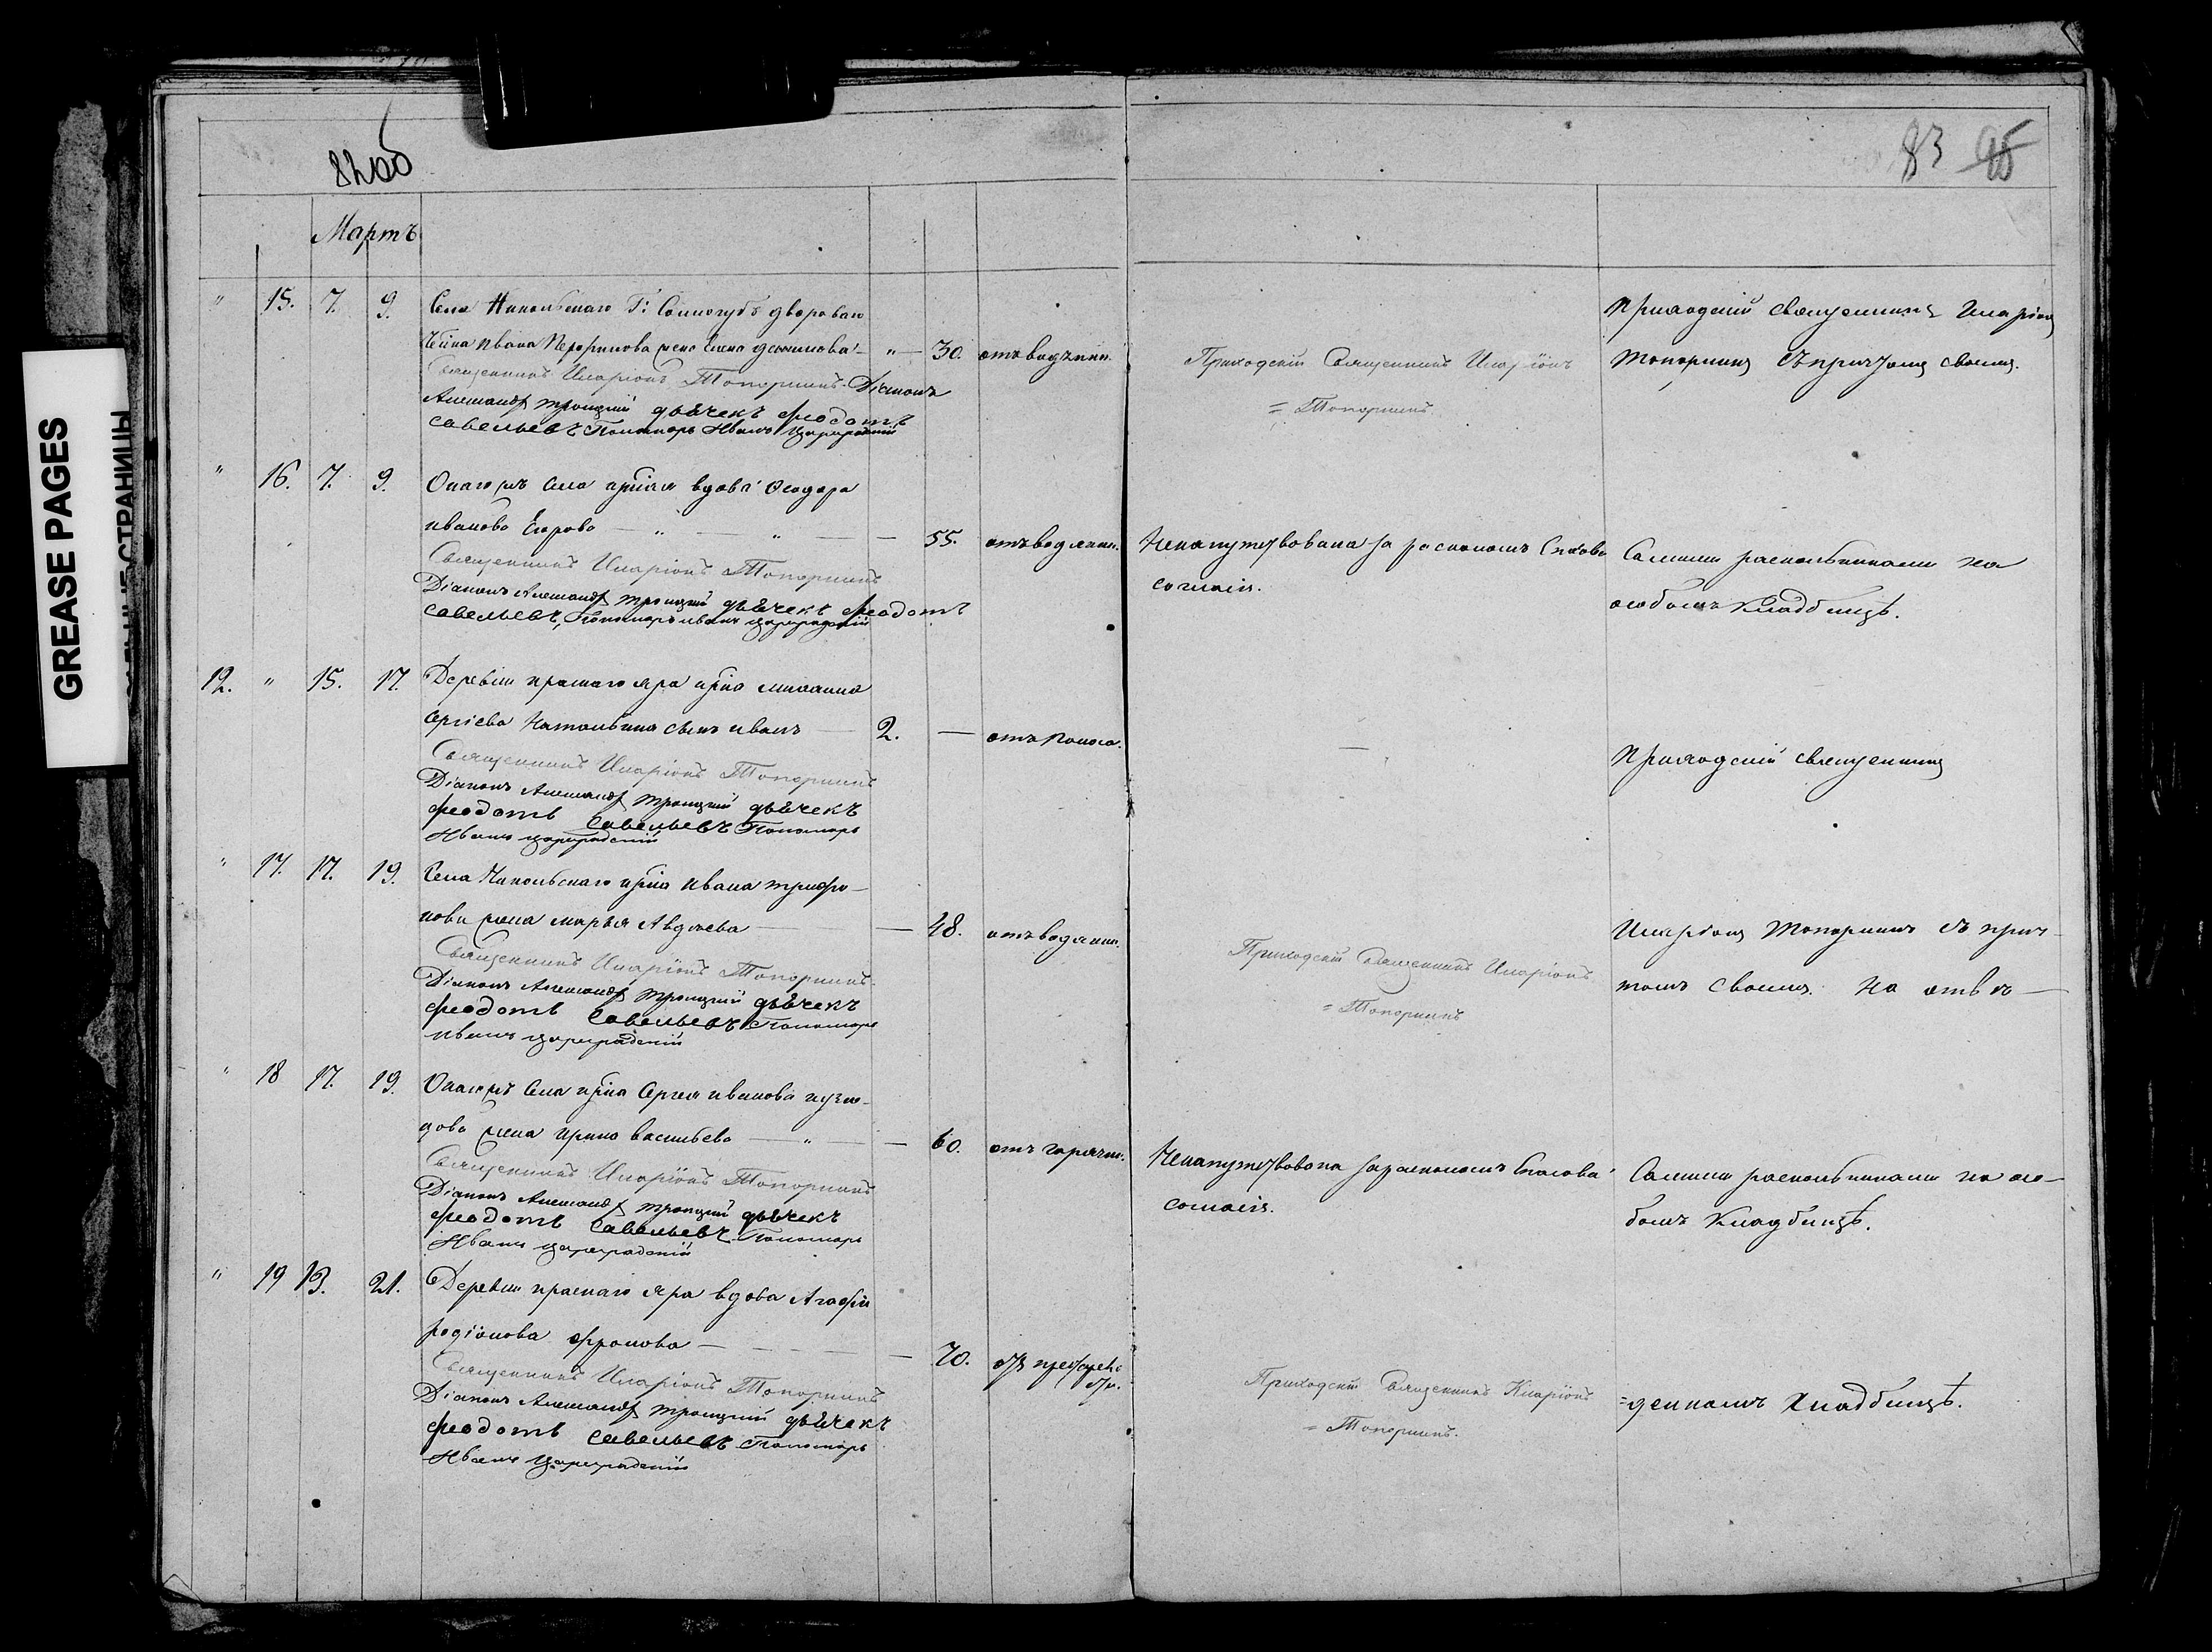 GREASE PAGES
СТРАНИЦЫ
82 об
83 95
Мартъ
" 15. 7. 9. Села Никольскаго Г: Сологубъ двороваго
Ивана жена Елена - " - 30. отъ водянки.
Священникъ Иларіонъ Топорнинъ. Діаконъ
Александръ Троицкій дьячекъ феодотъ
савельевъ Пономарь Иванъ Цареградскій
Приходскій Священникъ Иларіонъ
= Топорнинъ.
Приходскій священникъ Иларіонъ
Топорнинъ съ причтомъ своимъ.
" 16. 7. 9. Онагожъ села вдова Ѳедора
иванова Егорова — " — " — 55. отъ водянки.
Священникъ Иларіонъ Топорнинъ
Діаконъ Александръ Троицкій дьячекъ феодотъ
савельевъ, Пономарь иванъ цареградскій
Ненапутствована за расколомъ Спасова
согласія.
Самими раскольниками на
особомъ кладбищѣ.
12. " 15. 17. Деревни краснаго яра крна
Сергіева сынъ иванъ — 2. — отъ поноса.
Священникъ Иларіонъ Топорнинъ
Діаконъ Александръ Троицкій дьячекъ
феодотъ Савельевъ Пономарь
Иванъ цареградскій
—
Приходскій священникъ
" 17. 17. 19. Села Никольскаго крна ивана трифо-
нова жена марья Авдѣева — — 48. отъ водянки.
Священникъ Иларіонъ Топорнинъ.
Діаконъ Александръ Троицкій дьячекъ
феодотъ Савельевъ Пономарь
иванъ цареградскій
Приходскій Священникъ Иларіонъ
= Топорнинъ
Иларіонъ Топорнинъ съ прич-
томъ своимъ. На отве-
" 18 17. 19. Онагожъ села крна Сергея иванова кузне-
цова жена ирина васильева — " — — 60. отъ горячки.
Священникъ Иларіонъ Топорнинъ
Діаконъ Александръ Троицкій дьячекъ
феодотъ Савельевъ Пономарь
Иванъ цареградскій
Ненапутствована за расколомъ Спасова
согласія.
Самими раскольниками на осо-
бомъ кладбищѣ.
" 19 19. 21. Деревни краснаго яра вдова Агафія
родіонова — 70.
Священникъ Иларіонъ Топорнинъ
Діаконъ Александръ Троицкій дьячекъ
феодотъ савельевъ Пономарь
Иванъ Цареградскій
Приходскій Священникъ Иларіонъ
= Топорнинъ.
=денномъ кладбищѣ.